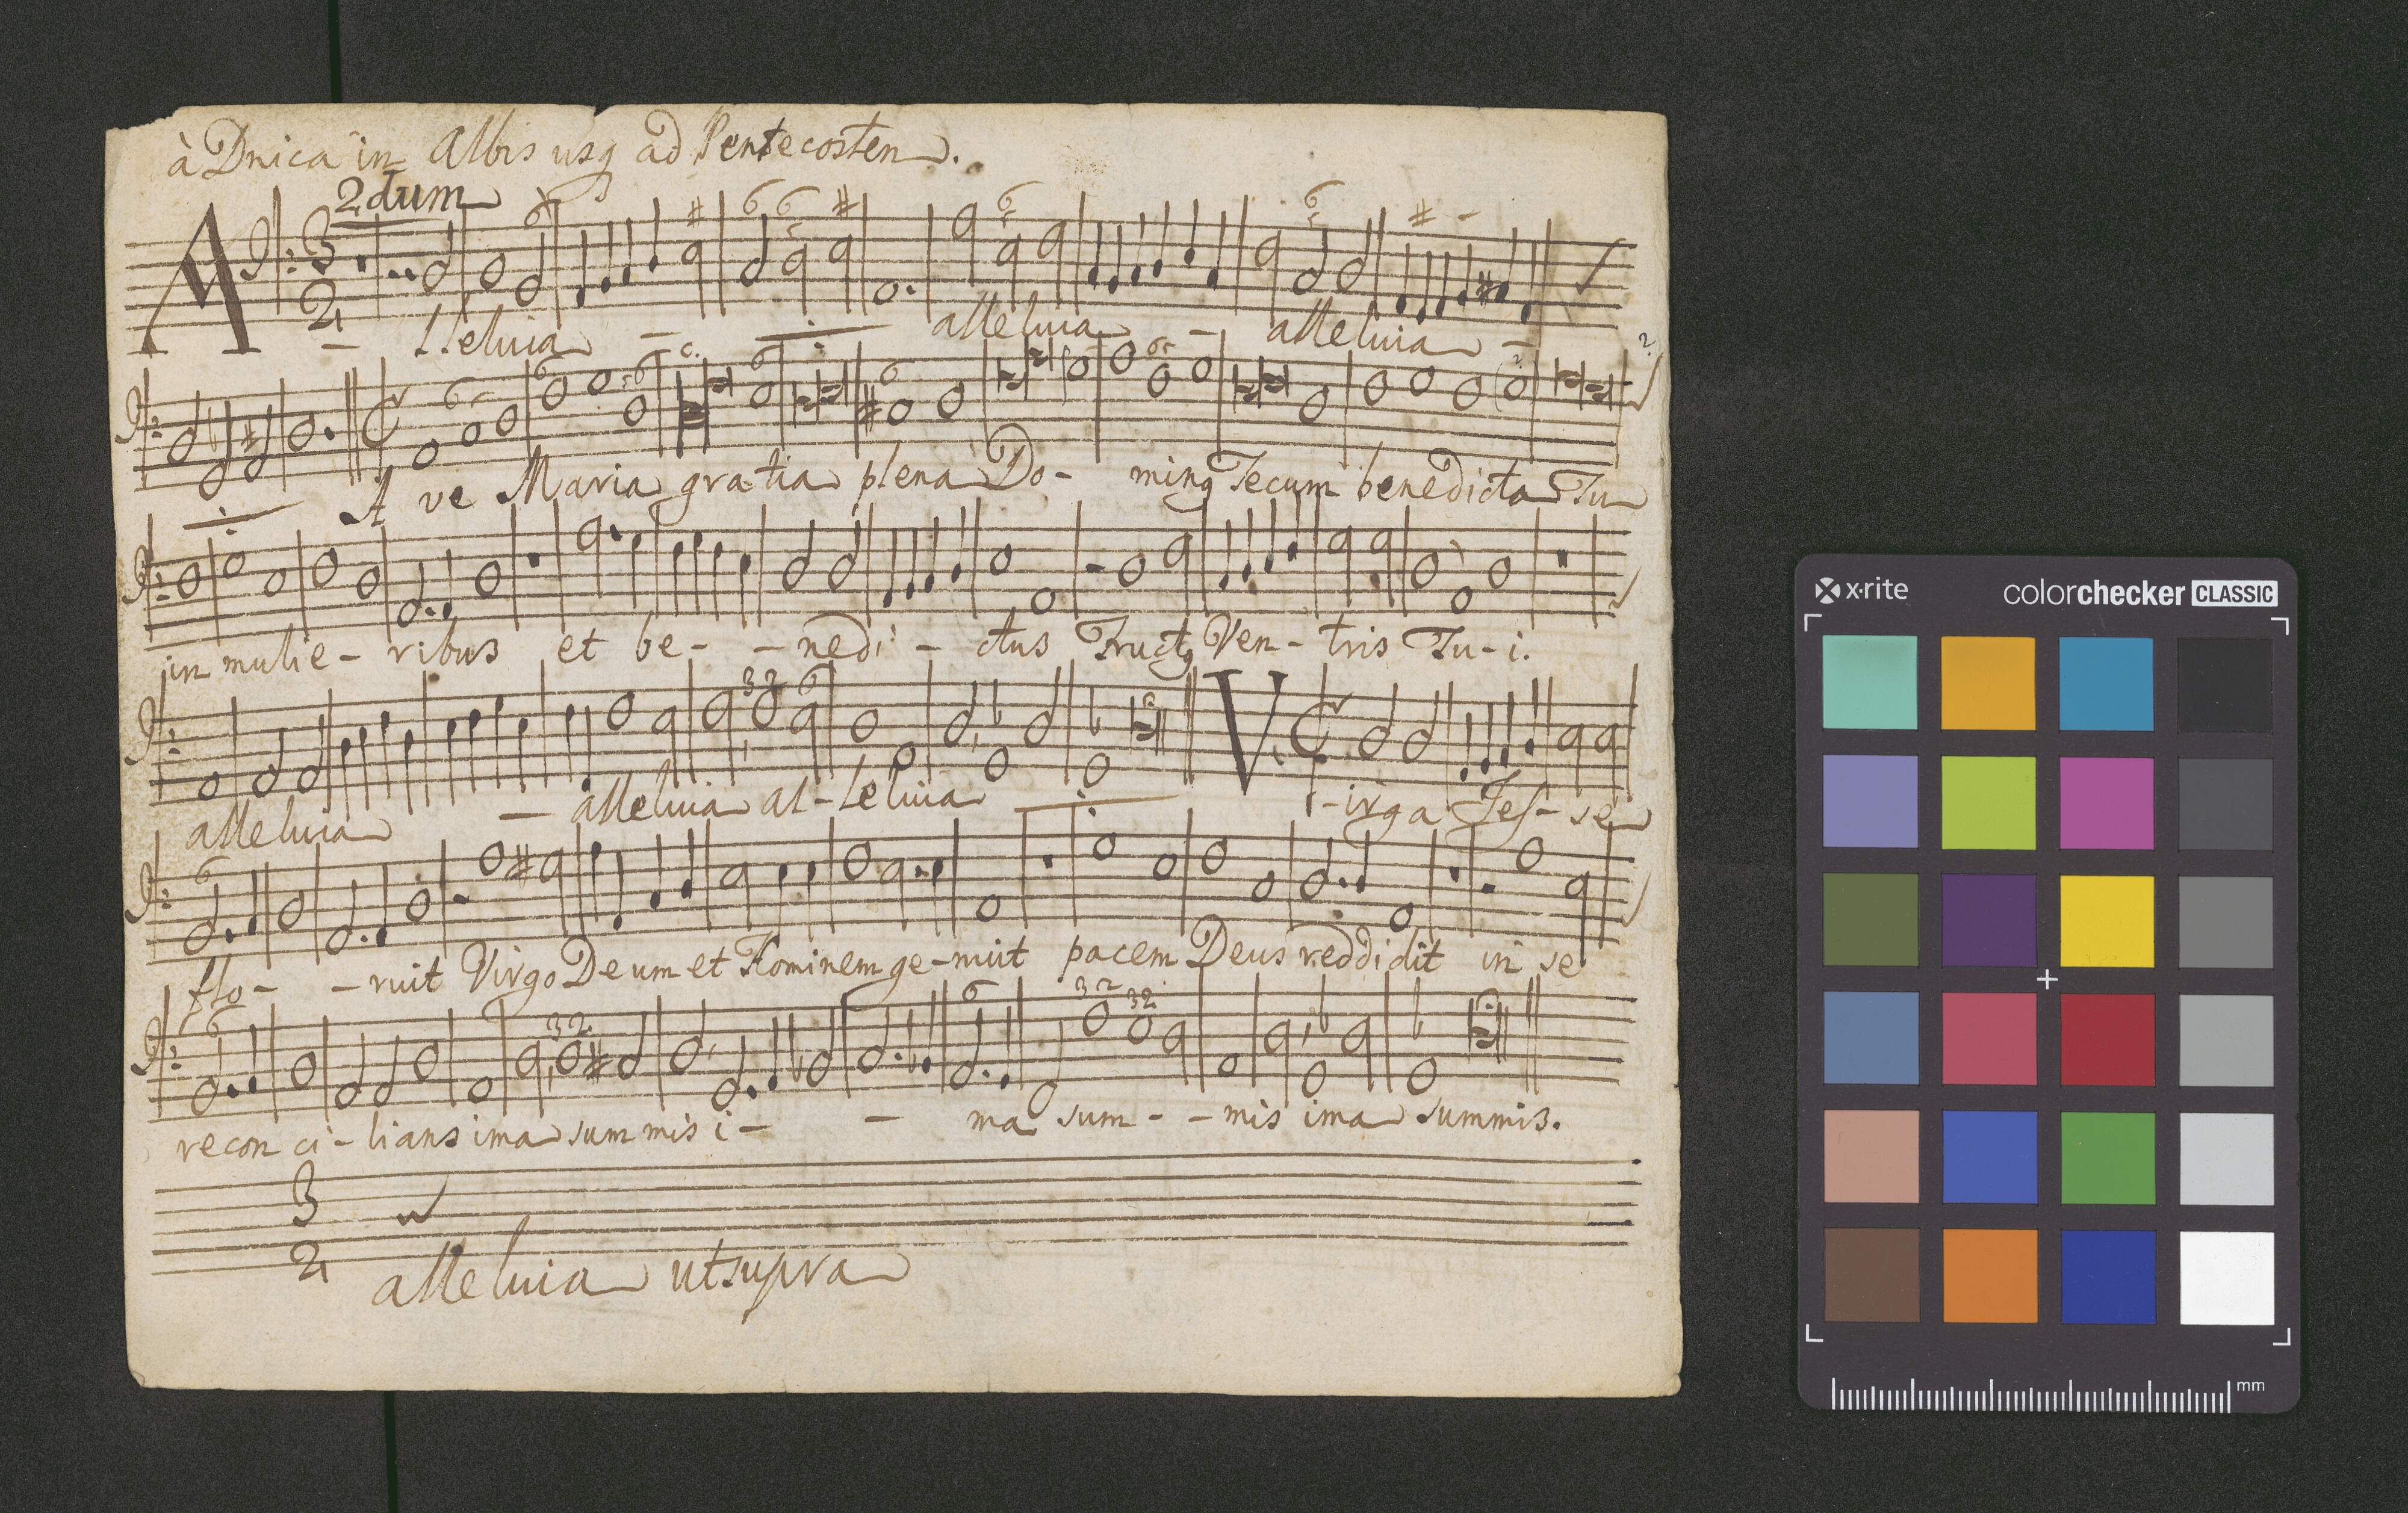 à Dnica in Albis usq ad Pentecosten.
2dum
Alleluia - alleluia - alleluia -
Ave Maria gratia plena Do- minq Tecum benedicta Tu
in mulie- ribus et be- - nedi- ctus Fructq Ven- tris Tu-i.
alleluia - alleluia al-leluia V. irga Jes- se
flo- - ruit Virgo Deum et Hominem ge-nuit pacem Deus reddidit in se
recon ci- lians ima summis i- - ma sum- - mis ima summis.
3 2
alleluia ut supra
x·rite colorchecker CLASSIC
mm